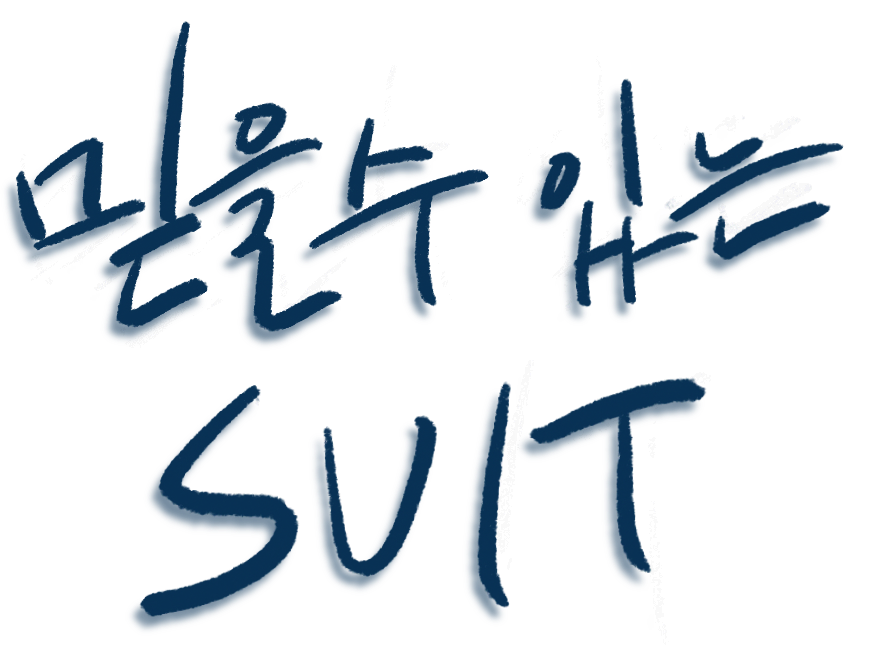 믿을수 있는
SUIT